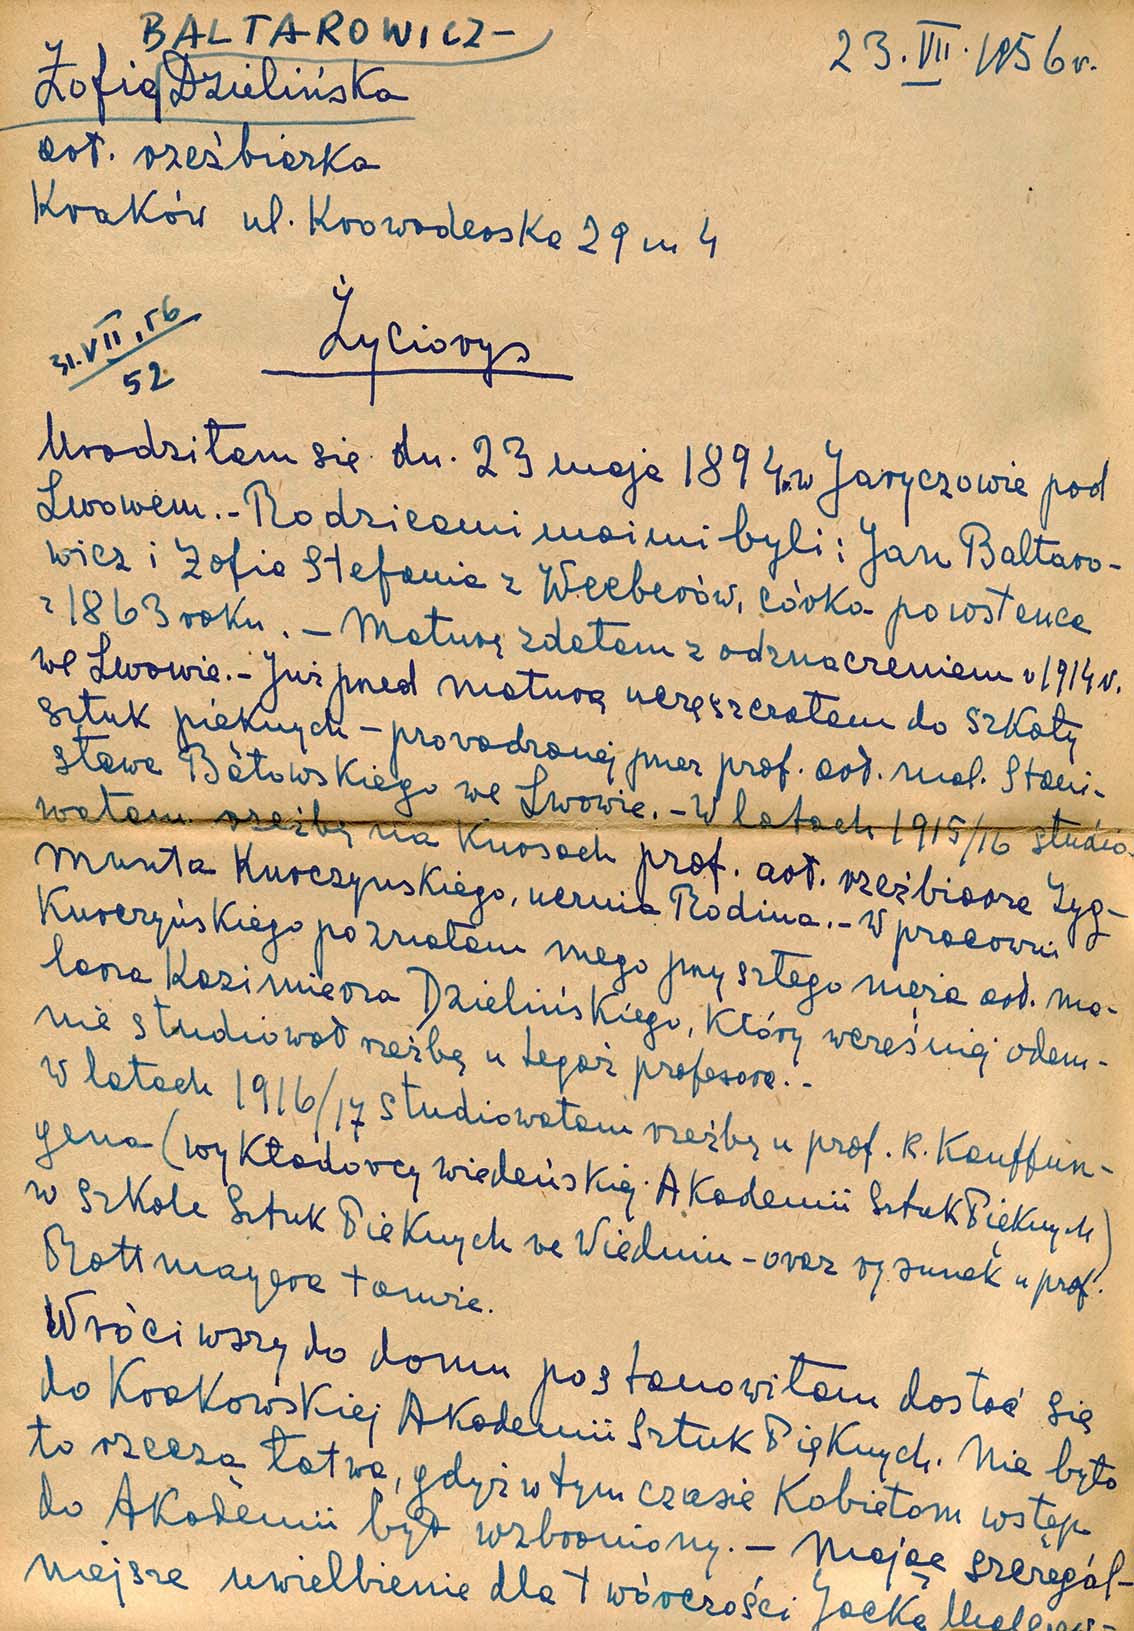 BALTAROWICZ-
23.VII.1956 r.
Zofia Dzielińska
art. rzeźbiarka
Kraków ul. Krowoderska 29 m 4
31.VII.56
52
Życiorys
Urodziłam się dn. 23 maja 1894 r. w Jaryczowie pod
Lwowem.- Rodzicami moimi byli: Jan Baltaro-
wicz i Zofia Stefania z Weeberów, córka powstańca
z 1863 roku. - Maturę zdałam z odznaczeniem w 1914 r.
we Lwowie.- Już przed maturą uczęszczałam do szkoły
sztuk pięknych - prowadzonej przez prof. art. mal. Stani-
sława Batowskiego we Lwowie.- W latach 1915/16 studio-
wałam rzeźbę na kursach prof. art. rzeźbiarza Zyg-
munta Kurczyńskiego, ucznia Rodina.- W pracowni
Kurczyńskiego poznałam mego przyszłego męża art. ma-
larza Kazimierza Dzielińskiego, który wcześniej odem-
nie studiował rzeźbę u tegoż profesora.-
W latach 1916/17 studiowałam rzeźbę u prof. R. Kauffun-
gena (wykładowcy wiedeńskiej Akademii Sztuk Pięknych)
w Szkole Sztuk Pięknych we Wiedniu - oraz rysunek u prof.
Rottmayera tamże.
Wróciwszy do domu postanowiłam dostać się
do Krakowskiej Akademii Sztuk Pięknych. Nie było
to rzeczą łatwą, gdyż w tym czasie kobietom wstęp
do Akademii był wzbroniony. - Mając szczegól-
niejsze uwielbienie dla twórczości Jacka Malczew-